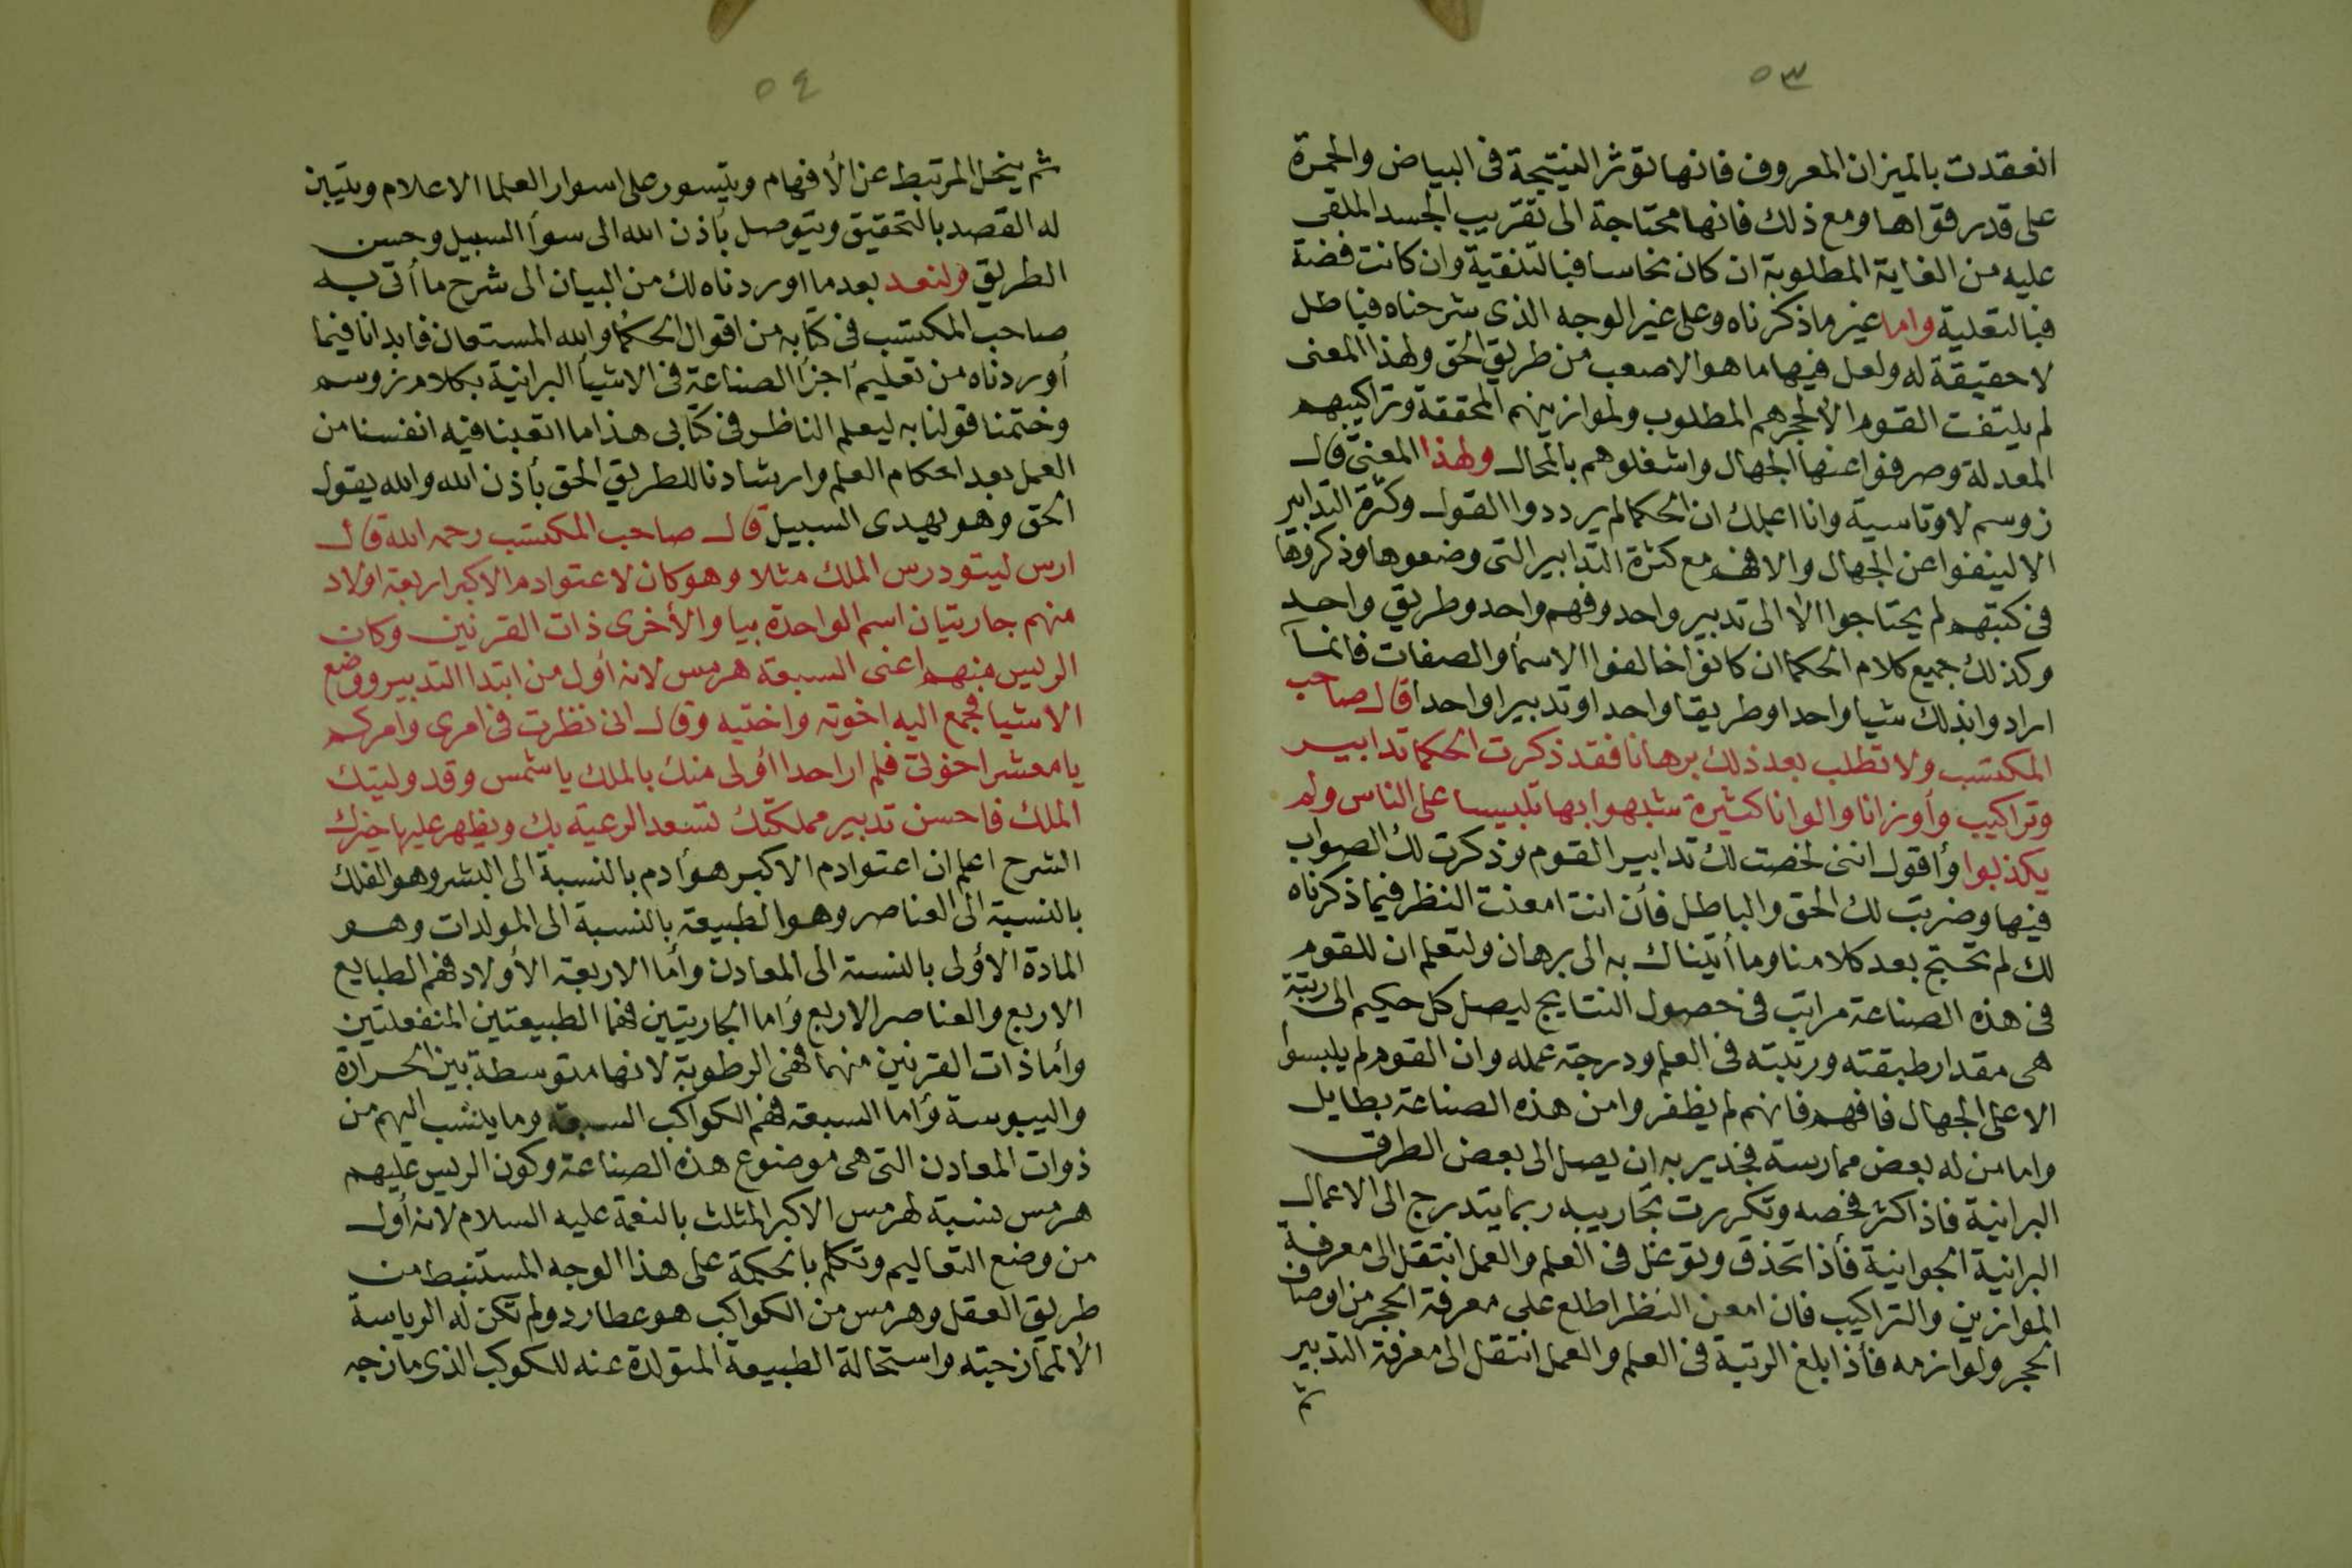 ٥٣
انعقدت بالميزان المعروف فانها توثر النتيجة فى البياض والحمرة
على قدر قواها ومع ذلك فانها محتاجة الى تقريب الجسد الملقى
عليه من الغاية المطلوبة ان كان نحاسا فبالتنقية وان كانت فضة
فبالتعلية واما غير ما ذكرناه وعلى غير الوجه الذى شرحناه فباطل
لا حقيقة له ولعل فيها ما هو الاصعب من طريق الحق ولهذا المعنى
لم يلتفت القوم الا لحجرهم المطلوب ولموازينهم المحققة وتراكيبهم
المعدلة وصرفوا عنها الجهال واشغلوهم بالمحال ولهذا المعنى قال
زوسم لاوتاسية وانا اعلمك ان الحكما لم يرددوا القول وكثرة التدابير
الا لينفوا عن الجهال والا فهم مع كثرة التدابير التى وضعوها وذكروها
فى كتبهم لم يحتاجوا الا الى تدبير واحد وفهم واحد وطريق واحد
وكذلك جميع كلام الحكما ان كانوا خالفوا الاسمأ والصفات فانما
ارادوا بذلك شيا واحدا وطريقا واحدا وتدبيرا واحدا قال صاحب
المكتسب ولا تطلب بعد ذلك برهانا فقد ذكرت الحكما تدابير
وتراكيب وأوزانا والوانا كثيرة شبهوا بها تلبيسا على الناس ولم
يكذبوا وأقول اننى لخصت لك تدابير القوم وذكرت لك الصواب
فيها وضربت لك الحق والباطل فأن انت امعنت النظر فيما ذكرناه
لك لم تحتج بعد كلامنا وما أتيناك به الى برهان ولتعلم ان للقوم
فى هذه الصناعة مراتب فى حصول النتايج ليصل كل حكيم الى رتبة
هى مقدار طبقته ورتبته فى العلم ودرجة عمله وان القوم لم يلبسوا
الا على الجهال فافهم فانهم لم يظفروا من هذه الصناعة بطايل
واما من له بعض ممارسة فجدير به ان يصل الى بعض الطرق
البرانية فاذا كثر فحصه وتكررت تجاربيه ربما يتدرج الى الاعمال
البرانية الجوانية فأذا تحذق وتوغل فى العلم والعمل انتقل الى معرفة
الموازين والتراكيب فان امعن النظر اطلع على معرفة الحجر من اوصاف
الحجر ولوازمه فأذا بلغ الرتبة فى العلم والعمل انتقل الى معرفة التدبير
ثم
٥٤
ثم ينحل المرتبط عن الأفهام ويتسور على اسوار العلما الاعلام ويتبين
له القصد بالتحقيق ويتوصل بأذن الله الى سوأ السبيل وحسن
الطريق ولنعد بعد ما اوردناه لك من البيان الى شرح ما أتى به
صاحب المكتسب فى كتابه من اقوال الحكما والله المستعان فابدانا فيما
أوردناه من تعليم اجزأ الصناعة فى الاشيأ البرانية بكلام زوسم
وختمنا قولنا به ليعلم الناظر فى كتابى هذا ما اتعبنا فيه انفسنا من
العمل بعد احكام العلم وارشادنا للطريق الحق بأذن الله والله يقول
الحق وهو يهدى السبيل قال صاحب المكتسب رحمه الله قال
ارس ليتودرس الملك مثلا وهو كان لاعتوادم الاكبر اربعة اولاد
منهم جاريتان اسم الواحدة بيا والأخرى ذات القرنين وكان
الريس منهم اعنى السبعة هرمس لانه أول من ابتدا التدبير ووضع
الاشيا فجمع اليه اخوته واختيه وقال انى نظرت فى امرى وامركم
يا معشر اخوتى فلم ار احدا أولى منك بالملك يا شمس وقد وليتك
الملك فاحسن تدبير مملكتك تسعد الرعية بك ويظهر عليها خيرك
الشرح اعلم ان اعتوادم الاكبر هو أدم بالنسبة الى البشر وهو الفلك
بالنسبة الى العناصر وهو الطبيعة بالنسبة الى المولدات وهو
المادة الأولى بالنسبة الى المعادن وأما الاربعة الأولاد فهم الطبايع
الاربع والعناصر الاربع وأما الجاريتين فهما الطبيعتين المنفعلتين
وأما ذات القرنين منهما فهى الرطوبة لانها متوسطة بين الحرارة
واليبوسة وأما السبعة فهم الكواكب السبعة وما ينتسب اليهم من
ذوات المعادن التى هى موضوع هذه الصناعة وكون الريس عليهم
هرمس نسبة لهرمس الاكبر المثلث بالنعمة عليه السلام لانه أول
من وضع التعاليم وتكلم بالحكمة على هذا الوجه المستنبط من
طريق العقل وهرمس من الكواكب هو عطارد ولم تكن له الرياسة
الا لممازجته واستحالة الطبيعة المتولدة عنه للكوكب الذى مازجه